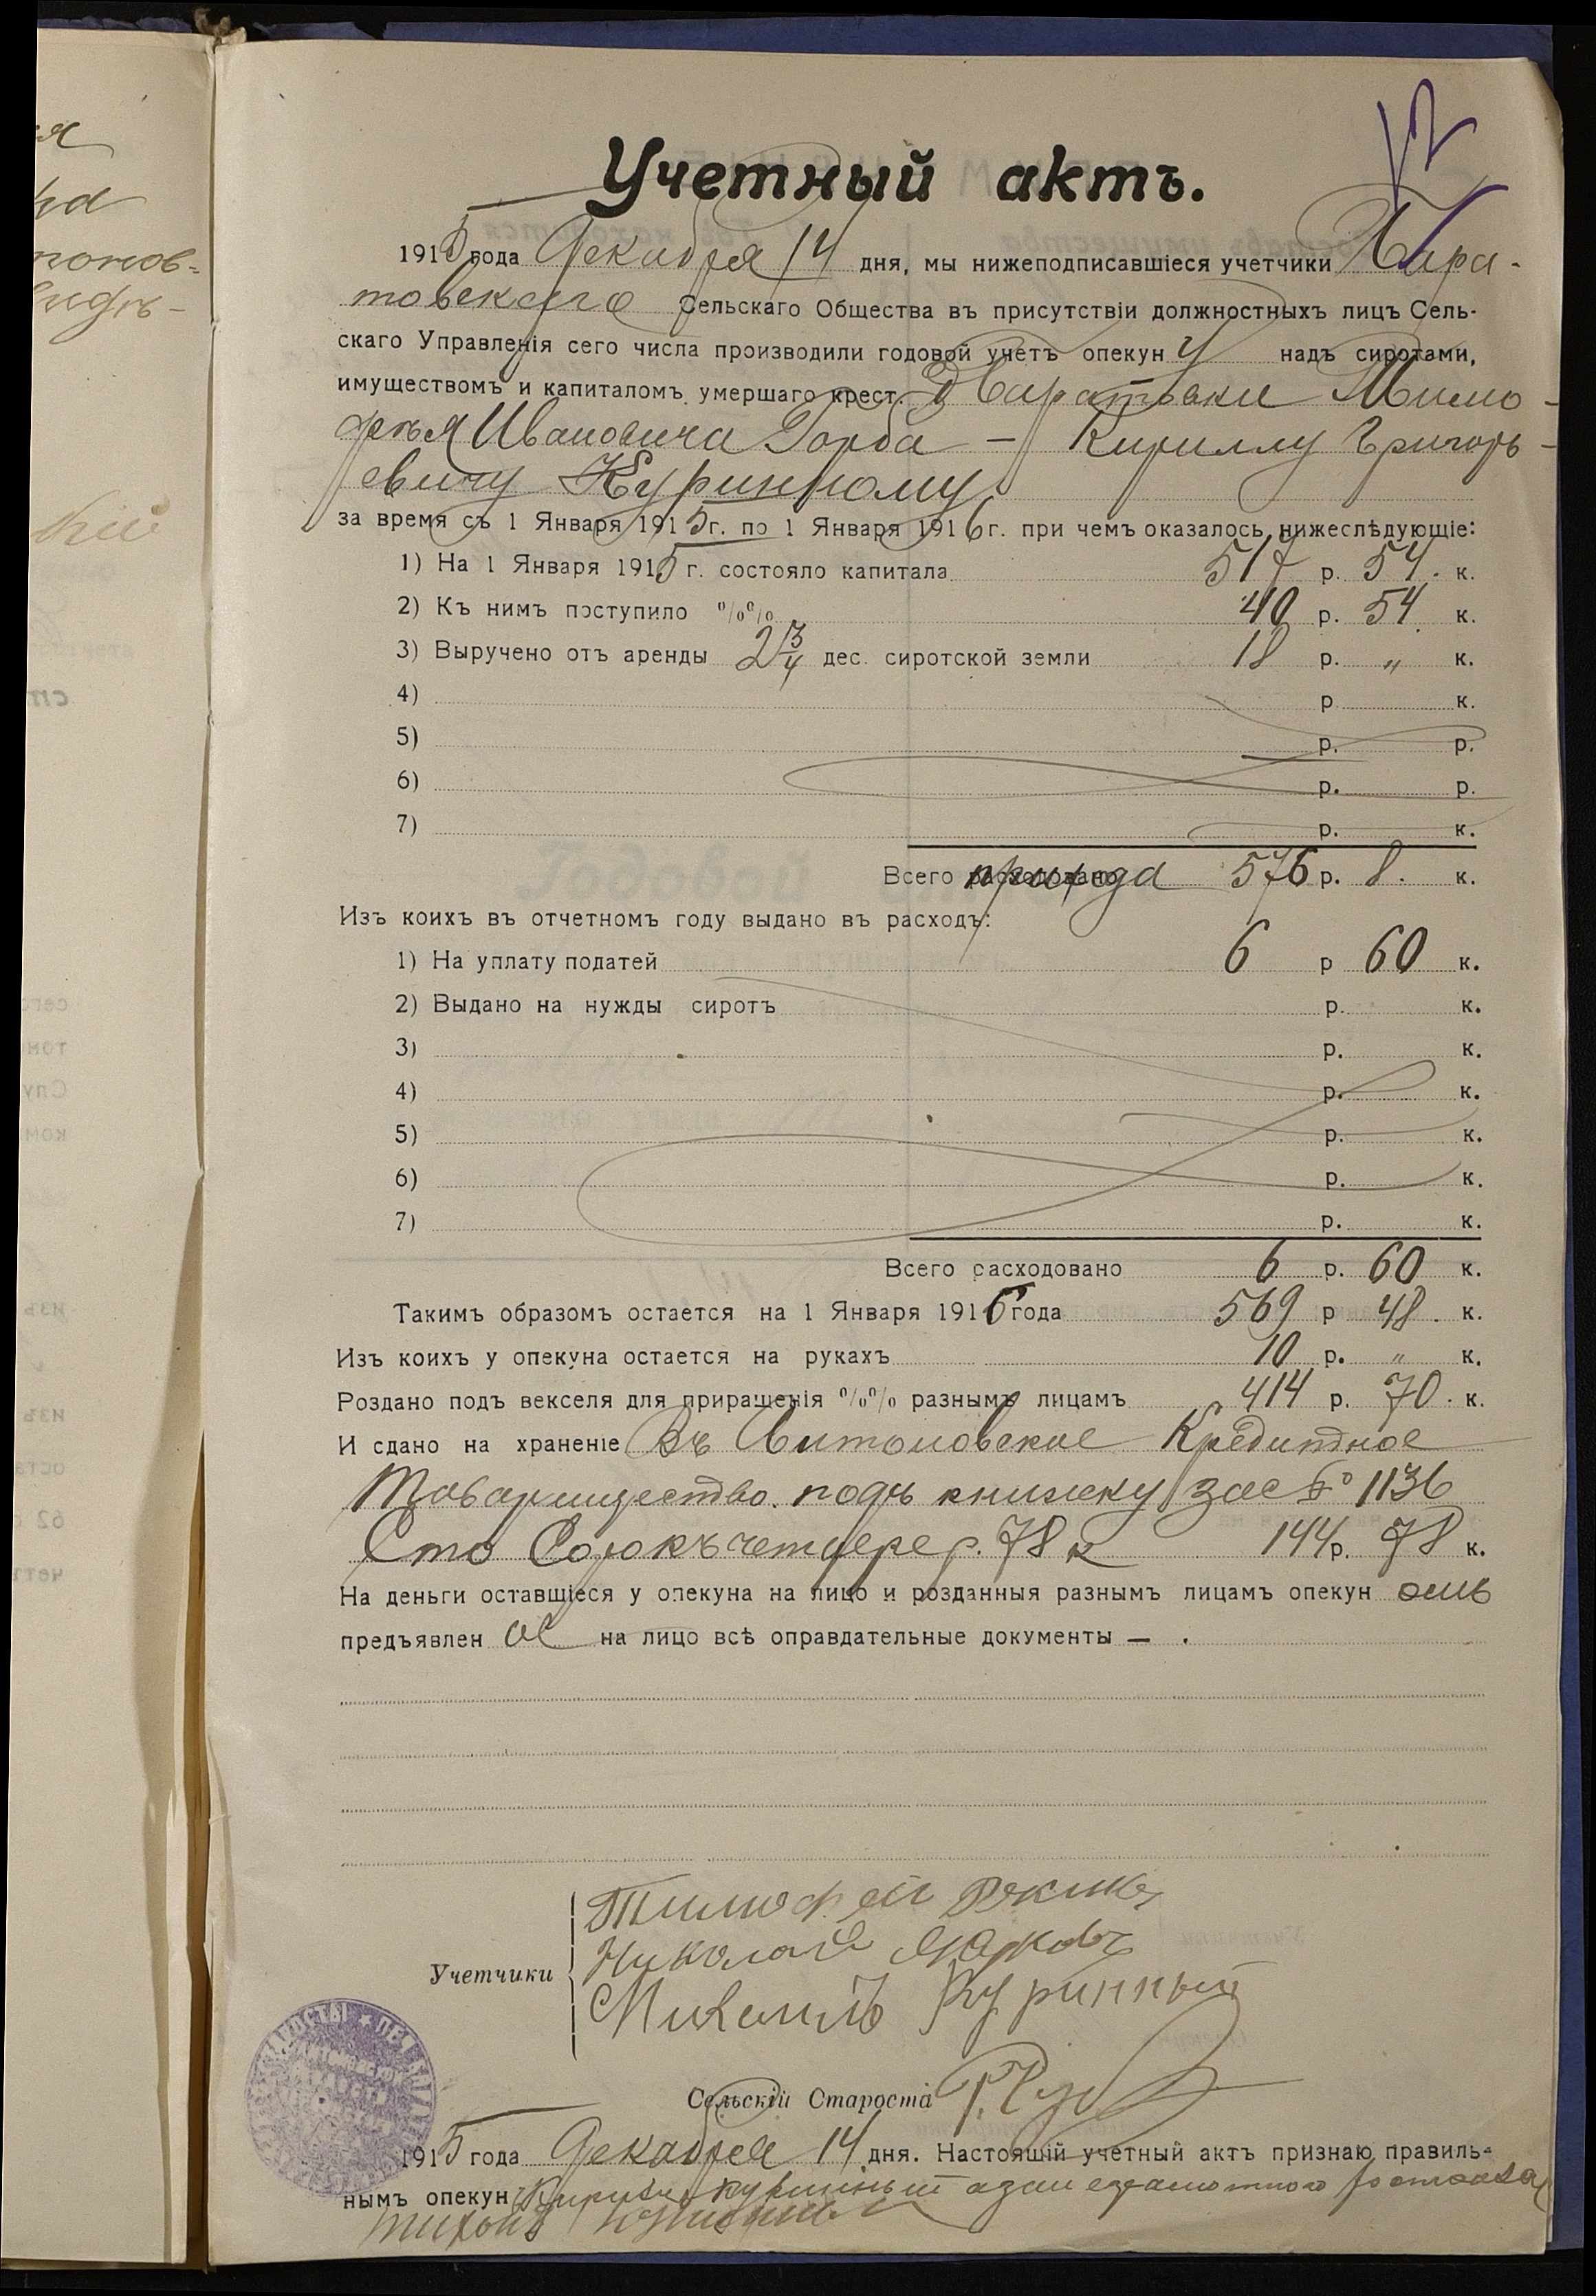 Учетный актъ.
1915 года Декабря 14 дня, мы нижеподписавшіеся учетчики Бара-
товскаго Сельскаго Общества въ присутствіи должностныхъ лицъ Сель-
скаго Управленія сего числа производили годовой учетъ опекун у надъ сиротами,
имуществомъ и капиталомъ умершаго крест. д Баратовки Тимо-
фея Ивановича Горба — Кириллу Григорь-
евичу Куринному
за время съ 1 Января 1915 г. по 1 Января 1916 г. при чемъ оказалось нижеслѣдующіе:
1) На 1 Января 1915 г. состояло капитала 517 р. 54 к.
2) Къ нимъ поступило %% 40 р. 54 к.
3) Выручено отъ аренды 2 3/4 дес. сиротской земли 18 р. „ к.
4) р. к.
5) р. р.
6) р. р.
7) р. к.
Всего прихода 576 р. 8 к.
Изъ коихъ въ отчетномъ году выдано въ расходъ:
1) На уплату податей 6 р 60 к.
2) Выдано на нужды сиротъ р. к.
3) р. к.
4) р. к.
5) р. к.
6) р. к.
7) р. к.
Всего расходовано 6 р. 60 к.
Такимъ образомъ остается на 1 Января 1916 года 569 р 48 к.
Изъ коихъ у опекуна остается на рукахъ 10 р. „ к.
Роздано подъ векселя для приращенія %% разнымъ лицамъ 414 р. 70 к.
И сдано на храненіе Въ Антоновское Кредитное
Товарищество подъ книжку за № 1136
Сто Сорокъ четыре р. 78 к 144 р. 78 к.
На деньги оставшіеся у опекуна на лицо и розданныя разнымъ лицамъ опекун омъ
предъявлен ы на лицо всѣ оправдательные документы — .
Учетчики
Тимофей
Николай Марковъ
Михаилъ Куринный
Сельскій Староста
1915 года Декабря 14 дня. Настоящій учетный актъ признаю правиль-
нымъ опекун Кирилъ Куринный
Тихонъ